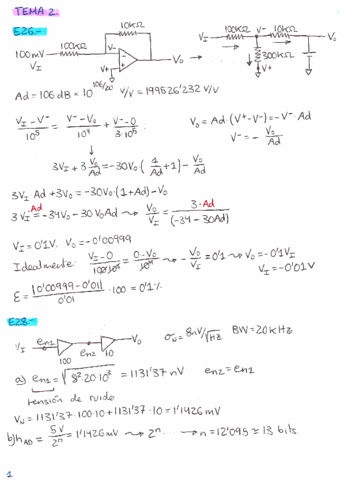 TEMA 2.
E26.-
100mV
V_I
100kΩ
10kΩ
V-
V+
V_o
V_I 100kΩ V- 10kΩ V_o
300kΩ
V+
Ad = 106 dB = 10^(106/20) V/V = 199526'232 V/V
(V_I - V-)/10^5 = (V- - V_o)/10^4 + (V- - 0)/(3·10^5)
V_o = Ad·(V+ - V-) = -V-·Ad
V- = - V_o/Ad
3V_I + 3 V_o/Ad = -30V_o (1/Ad + 1) - V_o/Ad
3V_I Ad + 3V_o = -30V_o·(1+Ad) - V_o
3V_I Ad = -34V_o - 30V_oAd → V_o/V_I = 3·Ad/(-34-30Ad)
V_I = 0'1V, V_o = -0'00999
Idealmente: → - V_o/V_I = 0'1 → V_o = -0'1V_I
V_I = -0'01V
ε = |0'00999 - 0'01|/0'01 · 100 = 0'1%
E28.-
V_I en1 100 en2 10 V_o
σ_w = 8nV/√Hz BW = 20KHz
a) en1 = √(8²·20·10³) = 1131'37 nV en2 = en1
tensión de ruido
V_N = 1131'37·100·10 + 1131'37·10 = 1'1426 mV
b) h_AD = 5V/2^n = 1'1426mV → 2^n ... → n = 12'095 ≈ 13 bits
1